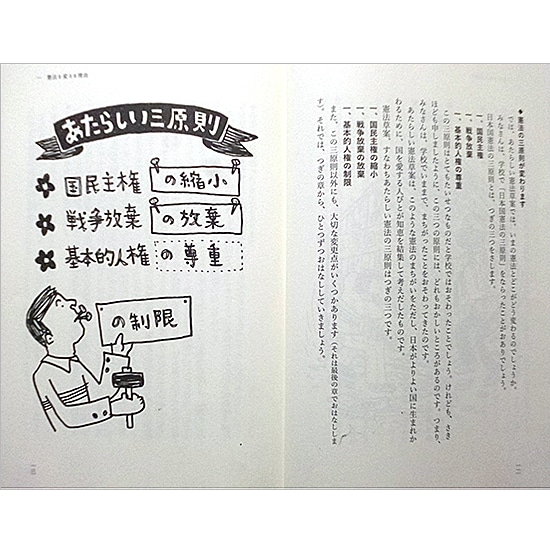 ◆憲法の三原則が変わります
では、あたらしい憲法草案では、いまの憲法とどこがどう変わるのでしょうか。
みなさんは、学校で「日本国憲法の三原則」をならったことがおありでしょう。
日本国憲法の三原則とは、つぎの三つをさします。
一、国民主権
一、戦争放棄
一、基本的人権の尊重
この三原則はとてもたいせつなものだと学校ではおそわったことでしょう。けれども、さき
ほども申しましたように、この三つの原則には、どれもおかしいところがあるのです。つまり、
みなさんは、学校でいままで、まちがったことをおそわってきたのです。
あたらしい憲法草案は、このような憲法のまちがいをただし、日本がよりよい国に生まれか
わるために、国を愛する人びとが知恵を結集して考えだしたものです。
憲法草案、すなわちあたらしい憲法の三原則はつぎの三つです。
一、国民主権の縮小
一、戦争放棄の放棄
一、基本的人権の制限
また、この三原則以外にも、大切な変更点がいくつかあります（それは最後の章でおはなししま
す）。それでは、つぎの章から、ひとつずつおはなししていきましょう。
一 憲法を変える理由
あたらしい三原則
国民主権の縮小
戦争放棄の放棄
基本的人権の尊重
の制限